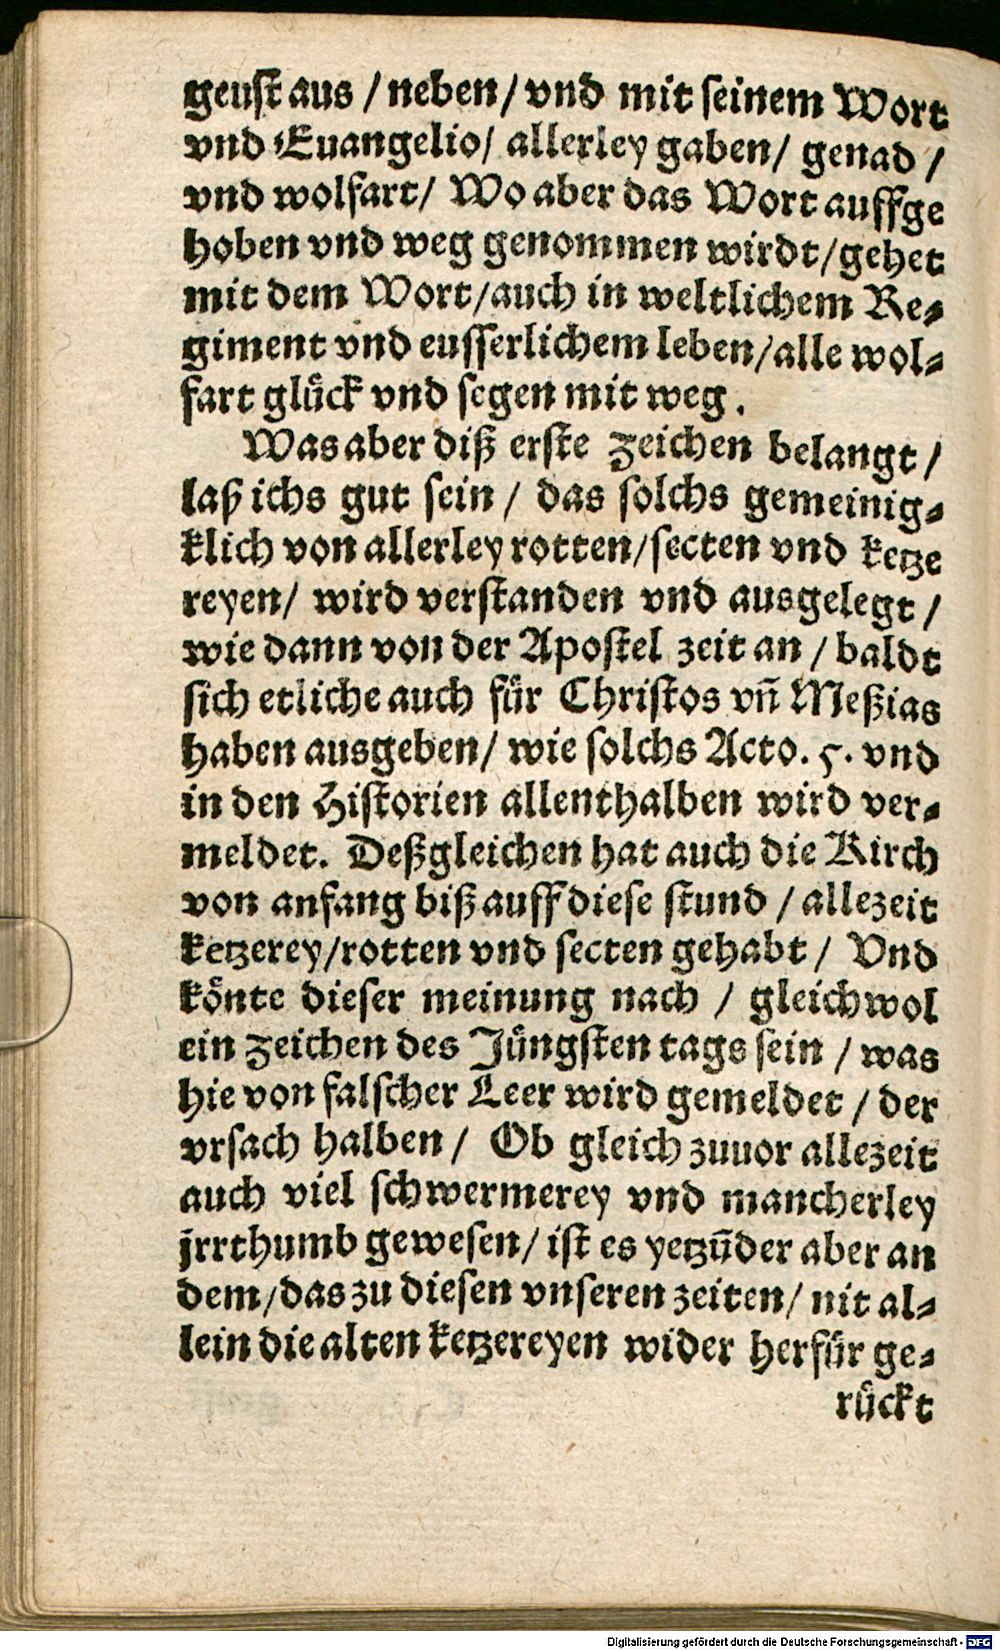 geust aus / neben / vnd mit seinem Wort
vnd Euangelio / allerley gaben / genad /
vnd wolfart / Wo aber das Wort auffge
hoben vnd weg genommen wirdt / gehet
mit dem Wort / auch in weltlichem Re⸗
giment vnd eusserlichem leben / alle wol⸗
fart glück vnd segen mit weg.
Was aber diß erste zeichen belangt /
laß ichs gut sein / das solchs gemeinig⸗
klich von allerley rotten / secten vnd ketze
reyen / wird verstanden vnd ausgelegt /
wie dann von der Apostel zeit an / baldt
sich etliche auch für Christos vñ Meßias
haben ausgeben / wie solchs Acto. 5. vnd
in den Historien allenthalben wird ver⸗
meldet. Deßgleichen hat auch die Kirch
von anfang biß auff diese stund / allezeit
ketzerey / rotten vnd secten gehabt / Vnd
könte dieser meinung nach / gleichwol
ein zeichen des Jüngsten tags sein / was
hie von falscher Leer wird gemeldet / der
vrsach halben / Ob gleich zuuor allezeit
auch viel schwermerey vnd mancherley
jrrthumb gewesen / ist es yetzũder aber an
dem / das zu diesen vnseren zeiten / nit al⸗
lein die alten ketzereyen wider herfür ge⸗
rückt
Digitalisierung gefördert durch die Deutsche Forschungsgemeinschaft - DFG